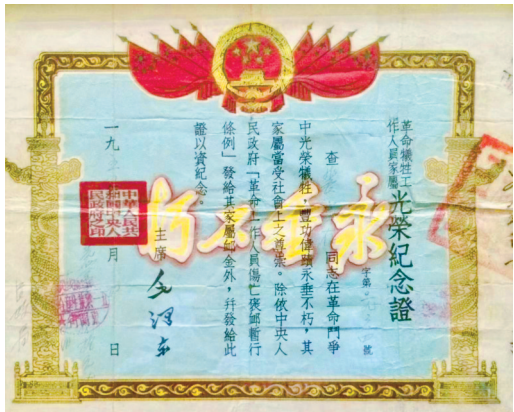 革命犧牲工作人員家屬
光榮紀念證
字第 號
查 同志在革命鬥爭
中光榮犧牲，豐功偉績永垂不朽，其
家屬當受社會上之尊崇。除依中央人
民政府「革命工作人員傷亡褒卹暫行
條例」發給其家屬卹金外，幷發給此
證以資紀念。
主席 毛澤東
一九 月 日
永垂不朽
中華人民共和國中央人民政府之印